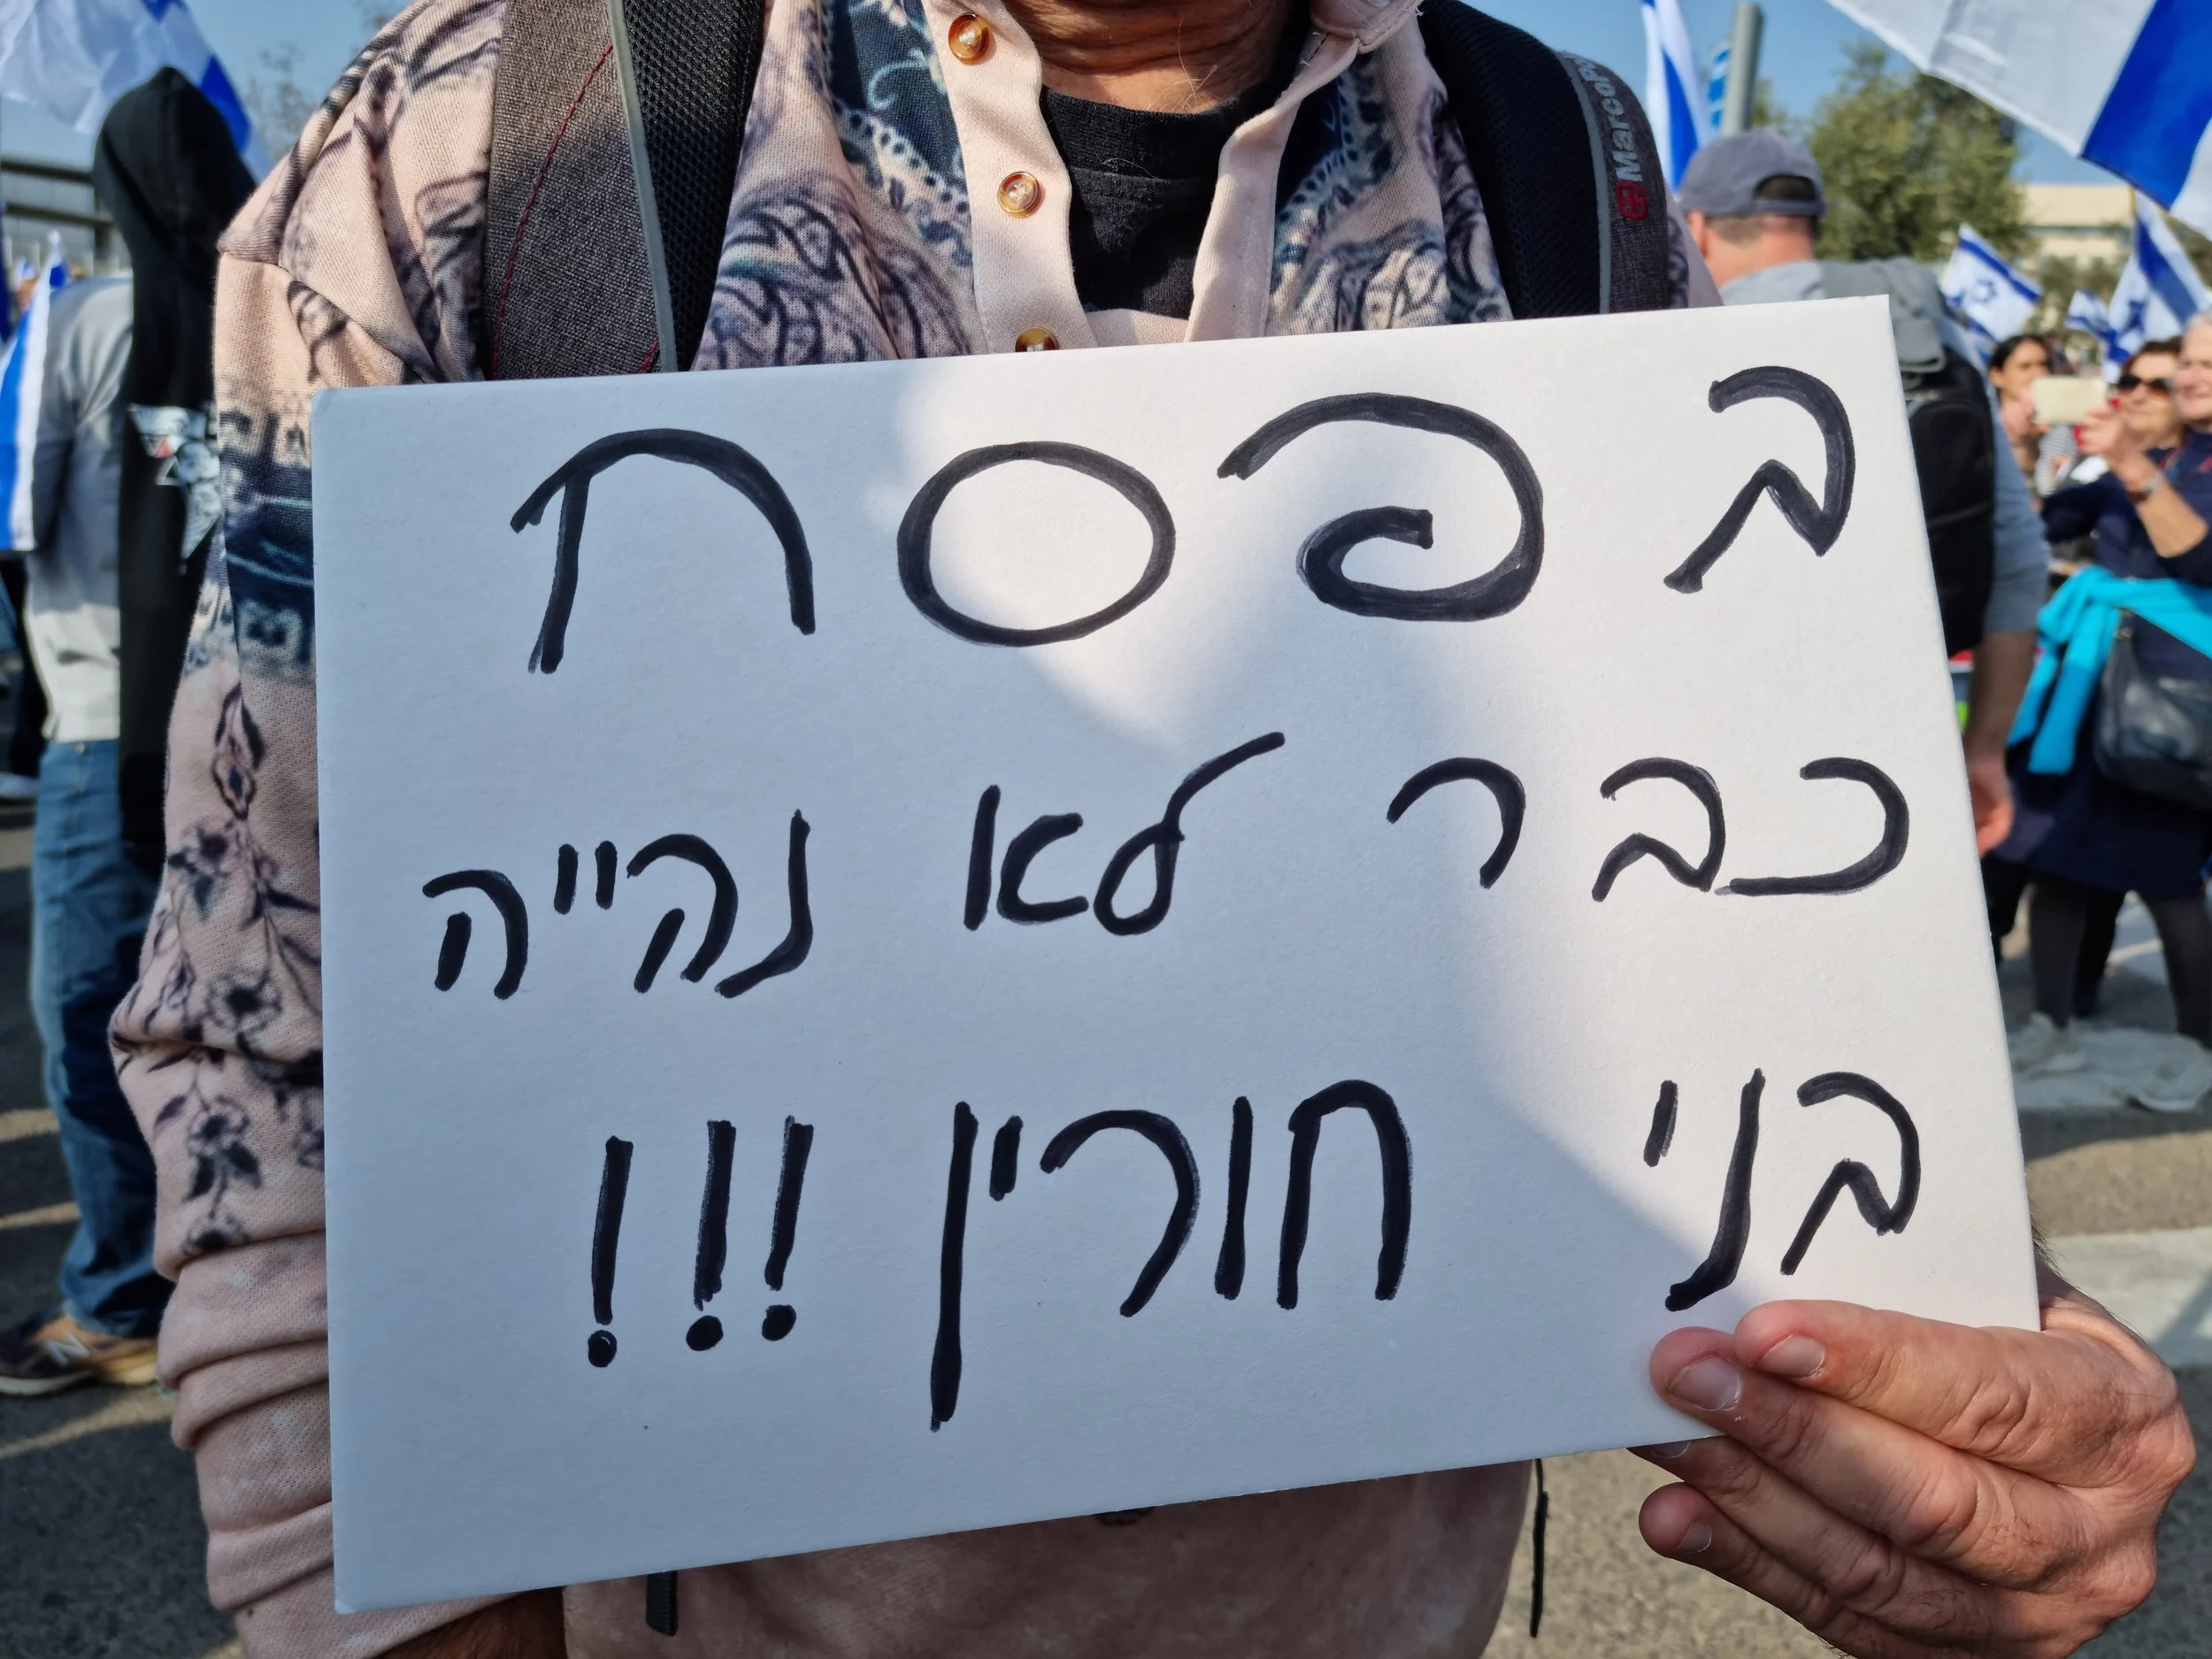 בפסח
כבר לא נהייה
בני חורין!!!
MarcoPo